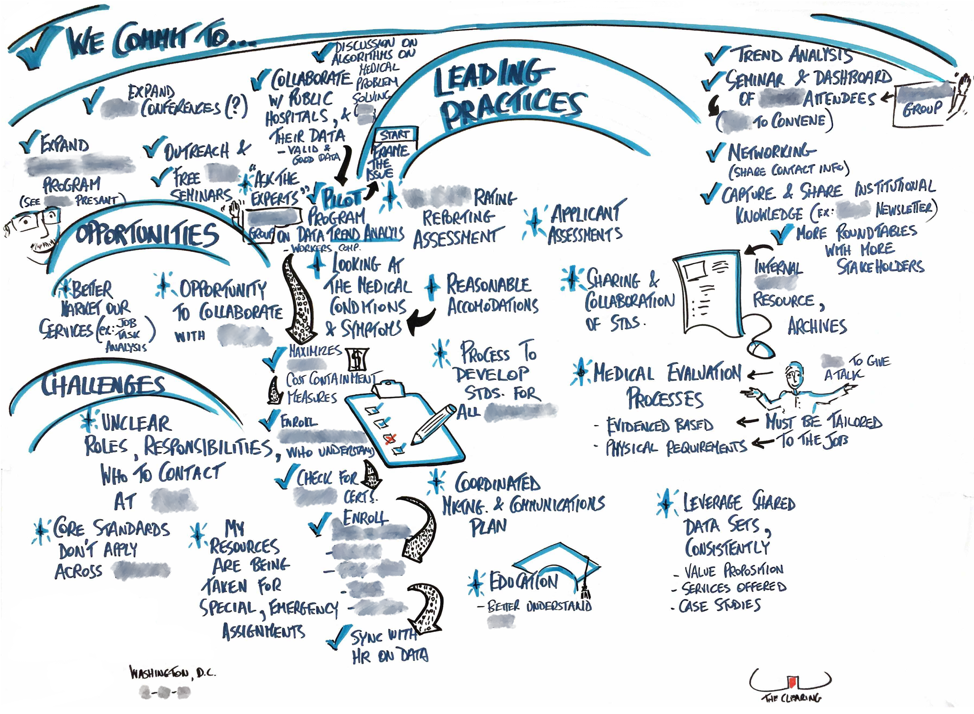 WE COMMIT TO...
EXPAND
CONFERENCES (?)
DISCUSSION ON
ALGORITHMS ON
MEDICAL
PROBLEM
SOLVING
COLLABORATE
W/ PUBLIC
HOSPITALS, &
THEIR DATA
- VALID &
GOOD DATA
EXPAND
PROGRAM
(SEE PRESANT)
OUTREACH &
FREE
SEMINARS
"ASK THE
EXPERTS"
GROUP
START
FRAME
THE
ISSUE
PILOT
PROGRAM
ON DATA TREND ANALYIS
WORKERS, COMP.
LEADING
PRACTICES
RATING
REPORTING
ASSESSMENT
APPLICANT
ASSESSMENTS
LOOKING AT
THE MEDICAL
CONDITIONS
& SYMPTOMS
REASONABLE
ACCOMODATIONS
SHARING &
COLLABORATION
OF STDS.
PROCESS TO
DEVELOP
STDS. FOR
ALL
MEDICAL EVALUATION
PROCESSES
- EVIDENCED BASED
- PHYSICAL REQUIREMENTS
MUST BE TAILORED
TO THE JOB
TO GIVE
A TALK
COORDINATED
MKTNG. & COMMUNICATIONS
PLAN
EDUCATION
- BETTER UNDERSTAND
LEVERAGE SHARED
DATA SETS,
CONSISTENTLY
- VALUE PROPOSITION
- SERVICES OFFERED
- CASE STUDIES
TREND ANALYSIS
SEMINAR & DASHBOARD
OF ATTENDEES
( TO CONVENE)
GROUP
NETWORKING
(SHARE CONTACT INFO)
CAPTURE & SHARE INSTITUTIONAL
KNOWLEDGE (EX: NEWSLETTER)
MORE ROUNDTABLES
WITH MORE
STAKEHOLDERS
INTERNAL
RESOURCE,
ARCHIVES
OPPORTUNITIES
BETTER
MARKET OUR
SERVICES (EX: JOB
TASK
ANALYSIS)
OPPORTUNITY
TO COLLABORATE
WITH
MAXIMIZES
$
COST CONTAINMENT
MEASURES
ENROLL
WHO UNDERSTAND
CHECK FOR
CERTS.
ENROLL
SYNC WITH
HR ON DATA
CHALLENGES
UNCLEAR
ROLES, RESPONSIBILITIES,
WHO TO CONTACT
AT
CORE STANDARDS
DON'T APPLY
ACROSS
MY
RESOURCES
ARE BEING
TAKEN FOR
SPECIAL, EMERGENCY
ASSIGNMENTS
WASHINGTON, D.C.
THE CLEARING